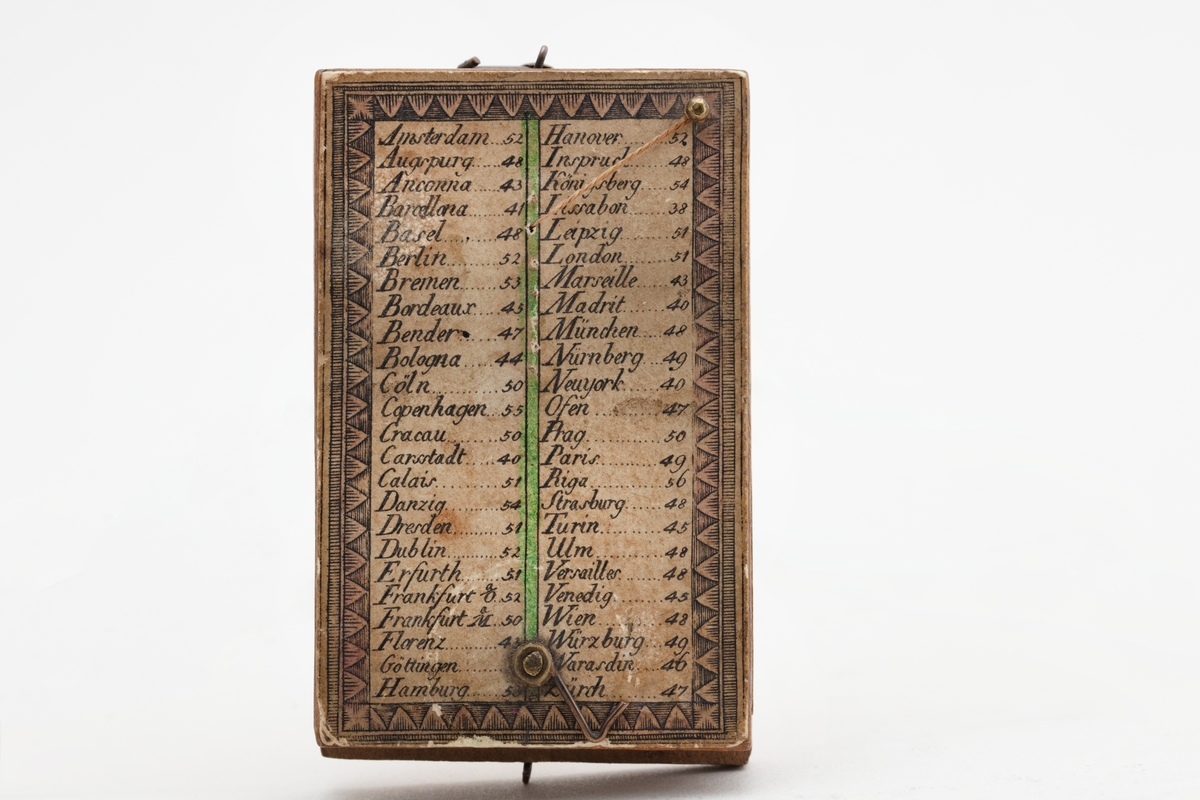 Amsterdam 52
Augspurg 48
Anconna 43
Barcellona 41
Basel 48
Berlin 52
Bremen 53
Bordeaux 45
Bender 47
Bologna 44
Cöln 50
Copenhagen 55
Cracau 50
Carsstadt 40
Calais 51
Danzig 54
Dresden 51
Dublin 52
Erfurth 51
Frankfurt a O. 52
Frankfurt a M 50
Florenz
Göttingen
Hamburg
Hanover 52
Inspruck 48
Königsberg 54
Lissabon 38
Leipzig 51
London 51
Marseille 43
Madrit 40
München 48
Nürnberg 49
Neuyork 40
Ofen 47
Prag 50
Paris 49
Riga 56
Strasburg 48
Turin 45
Ulm 48
Versailles 48
Venedig 45
Wien 48
Würzburg 49
Warasdin 46
Zürch 47